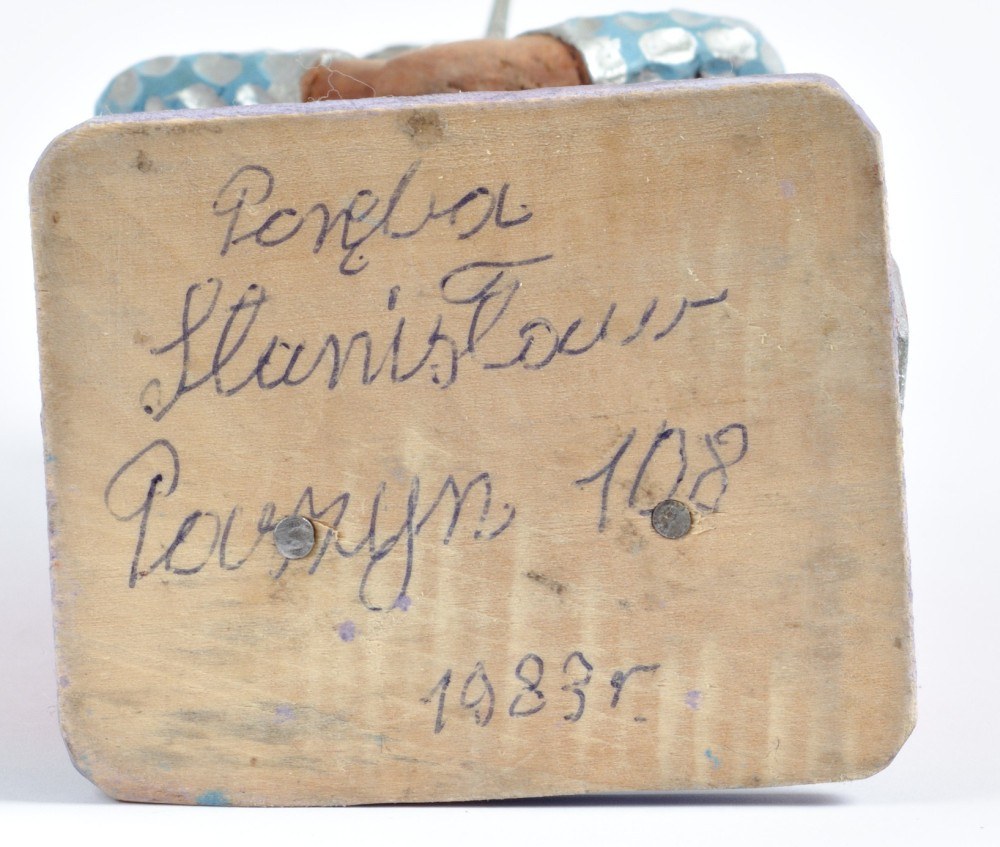 Poręba
Stanisław
Paszyn 108
1983r.